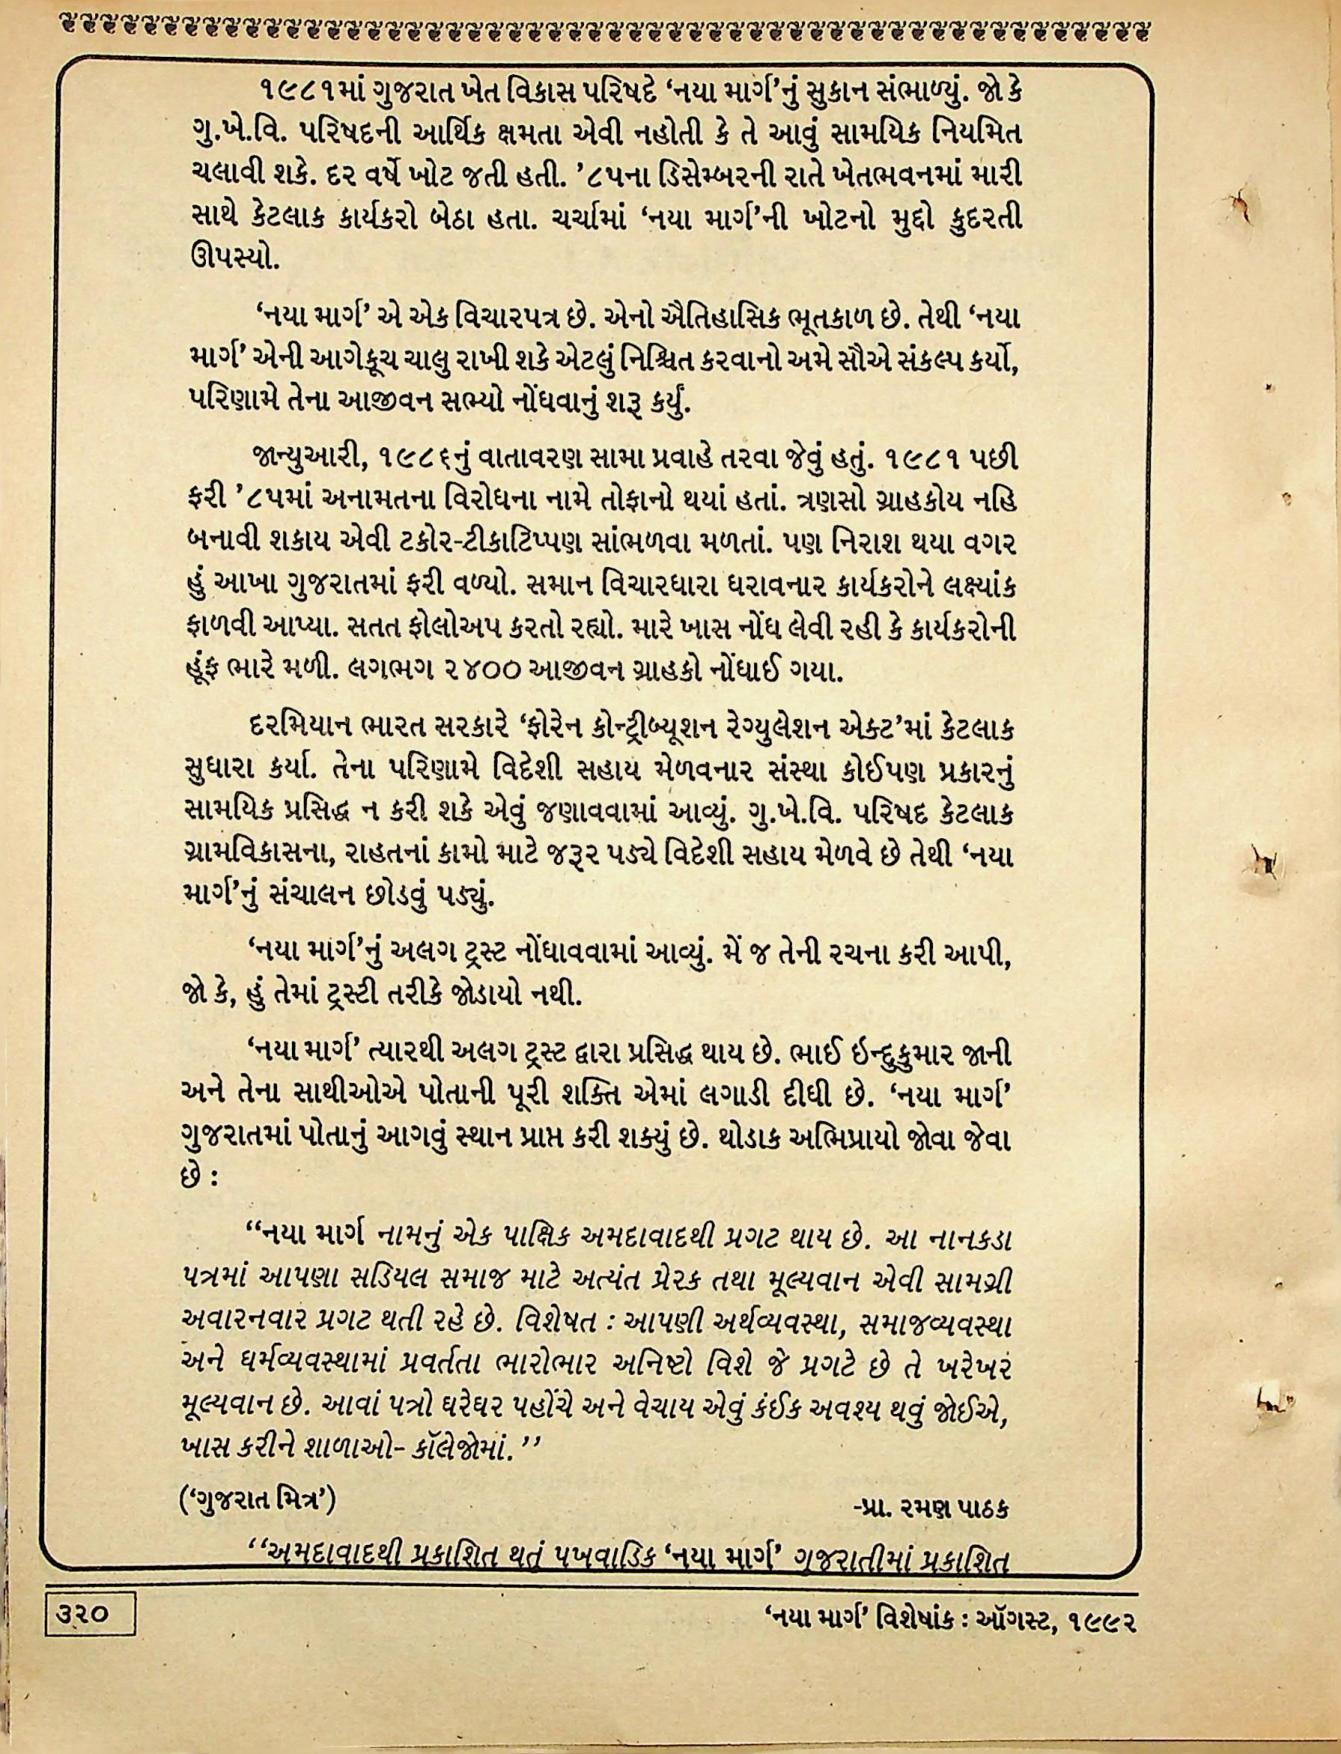 ૧૯૮૧માં ગુજરાત ખેત વિકાસ પરિષદે ‘નયા માર્ગ’નું સુકાન સંભાળ્યું. જો કે
ગુ.ખે.વિ. પરિષદની આર્થિક ક્ષમતા એવી નહોતી કે તે આવું સામયિક નિયમિત
ચલાવી શકે. દર વર્ષે ખોટ જતી હતી. ’૮૫ના ડિસેમ્બરની રાતે ખેતભવનમાં મારી
સાથે કેટલાક કાર્યકરો બેઠા હતા. ચર્ચામાં ‘નયા માર્ગ’ની ખોટનો મુદ્દો કુદરતી
ઊપસ્યો.
‘નયા માર્ગ’ એ એક વિચારપત્ર છે. એનો ઐતિહાસિક ભૂતકાળ છે. તેથી ‘નયા
માર્ગ’ એની આગેકૂચ ચાલુ રાખી શકે એટલું નિશ્ચિત કરવાનો અમે સૌએ સંકલ્પ કર્યો,
પરિણામે તેના આજીવન સભ્યો નોંધવાનું શરૂ કર્યું.
જાન્યુઆરી, ૧૯૮૬નું વાતાવરણ સામા પ્રવાહે તરવા જેવું હતું. ૧૯૮૧ પછી
ફરી ’૮૫માં અનામતના વિરોધના નામે તોફાનો થયાં હતાં. ત્રણસો ગ્રાહકોય નહિ
બનાવી શકાય એવી ટકોર-ટીકાટિપ્પણ સાંભળવા મળતાં. પણ નિરાશ થયા વગર
હું આખા ગુજરાતમાં ફરી વળ્યો. સમાન વિચારધારા ધરાવનાર કાર્યકરોને લક્ષ્યાંક
ફાળવી આપ્યા. સતત ફોલોઅપ કરતો રહ્યો. મારે ખાસ નોંધ લેવી રહી કે કાર્યકરોની
હૂંફ ભારે મળી. લગભગ ૨૪૦૦ આજીવન ગ્રાહકો નોંધાઈ ગયા.
દરમિયાન ભારત સરકારે ‘ફોરેન કોન્ટ્રીબ્યૂશન રેગ્યુલેશન એક્ટ’માં કેટલાક
સુધારા કર્યા. તેના પરિણામે વિદેશી સહાય મેળવનાર સંસ્થા કોઈપણ પ્રકારનું
સામયિક પ્રસિદ્ધ ન કરી શકે એવું જણાવવામાં આવ્યું. ગુ.ખે.વિ. પરિષદ કેટલાક
ગ્રામવિકાસના, રાહતનાં કામો માટે જરૂર પડ્યે વિદેશી સહાય મેળવે છે તેથી ‘નયા
માર્ગ’નું સંચાલન છોડવું પડ્યું.
‘નયા માર્ગ’નું અલગ ટ્રસ્ટ નોંધાવવામાં આવ્યું. મેં જ તેની રચના કરી આપી,
જો કે, હું તેમાં ટ્રસ્ટી તરીકે જોડાયો નથી.
‘નયા માર્ગ’ ત્યારથી અલગ ટ્રસ્ટ દ્વારા પ્રસિદ્ધ થાય છે. ભાઈ ઇન્દુકુમાર જાની
અને તેના સાથીઓએ પોતાની પૂરી શક્તિ એમાં લગાડી દીધી છે. ‘નયા માર્ગ’
ગુજરાતમાં પોતાનું આગવું સ્થાન પ્રાપ્ત કરી શક્યું છે. થોડાક અભિપ્રાયો જોવા જેવા
છે :
“નયા માર્ગ નામનું એક પાક્ષિક અમદાવાદથી પ્રગટ થાય છે. આ નાનકડા
પત્રમાં આપણા સડિયલ સમાજ માટે અત્યંત પ્રેરક તથા મૂલ્યવાન એવી સામગ્રી
અવારનવાર પ્રગટ થતી રહે છે. વિશેષત : આપણી અર્થવ્યવસ્થા, સમાજવ્યવસ્થા
અને ધર્મવ્યવસ્થામાં પ્રવર્તતા ભારોભાર અનિષ્ટો વિશે જે પ્રગટે છે તે ખરેખર
મૂલ્યવાન છે. આવાં પત્રો ઘરેઘર પહોંચે અને વેચાય એવું કંઈક અવશ્ય થવું જોઈએ,
ખાસ કરીને શાળાઓ- કૉલેજોમાં.’’
(‘ગુજરાત મિત્ર’) -પ્રા. રમણ પાઠક
‘‘અમદાવાદથી પ્રકાશિત થતું પખવાડિક ‘નયા માર્ગ’ ગુજરાતીમાં પ્રકાશિત
૩૨૦ ‘નયા માર્ગ’ વિશેષાંક : ઑગસ્ટ, ૧૯૯૨